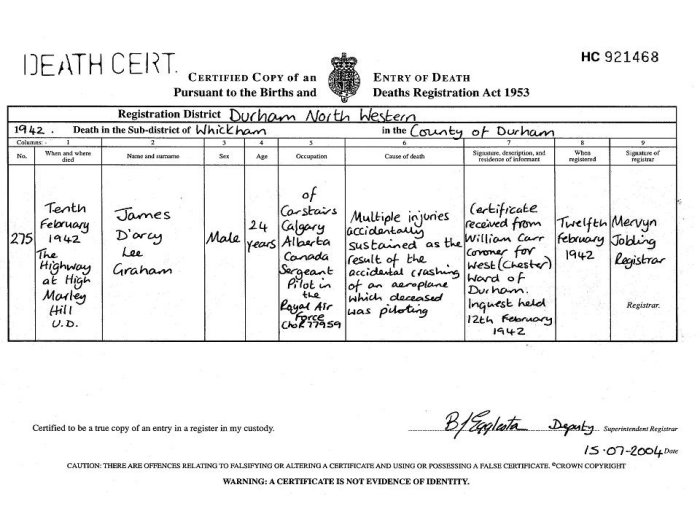 DEATH CERT.
HC 921468
CERTIFIED COPY of an ENTRY OF DEATH
Pursuant to the Births and Deaths Registration Act 1953
Registration District Durham North Western
1942. Death in the Sub-district of Whickham in the County of Durham
Columns: - 1 2 3 4 5 6 7 8 9
No. When and where died Name and surname Sex Age Occupation Cause of death Signature, description, and residence of informant When registered Signature of registrar
275
Tenth
February
1942
The
Highway
at High
Marley
Hill
U.D.
James
D'arcy
Lee
Graham
Male
24
years
of
Carstairs
Calgary
Alberta
Canada
Sergeant
Pilot in
the
Royal Air
Force
Multiple injuries
accidentally
sustained as the
result of the
accidental crashing
of an aeroplane
which deceased
was piloting
Certificate
received from
William Carr
coroner for
West (Chester)
Ward of
Durham.
Inquest held
12th February
1942
Twelfth
February
1942
Mervyn
Jobling
Registrar
Registrar.
Certified to be a true copy of an entry in a register in my custody.
Deputy Superintendent Registrar
15.07-2004 Date
CAUTION: THERE ARE OFFENCES RELATING TO FALSIFYING OR ALTERING A CERTIFICATE AND USING OR POSSESSING A FALSE CERTIFICATE. ©CROWN COPYRIGHT
WARNING: A CERTIFICATE IS NOT EVIDENCE OF IDENTITY.